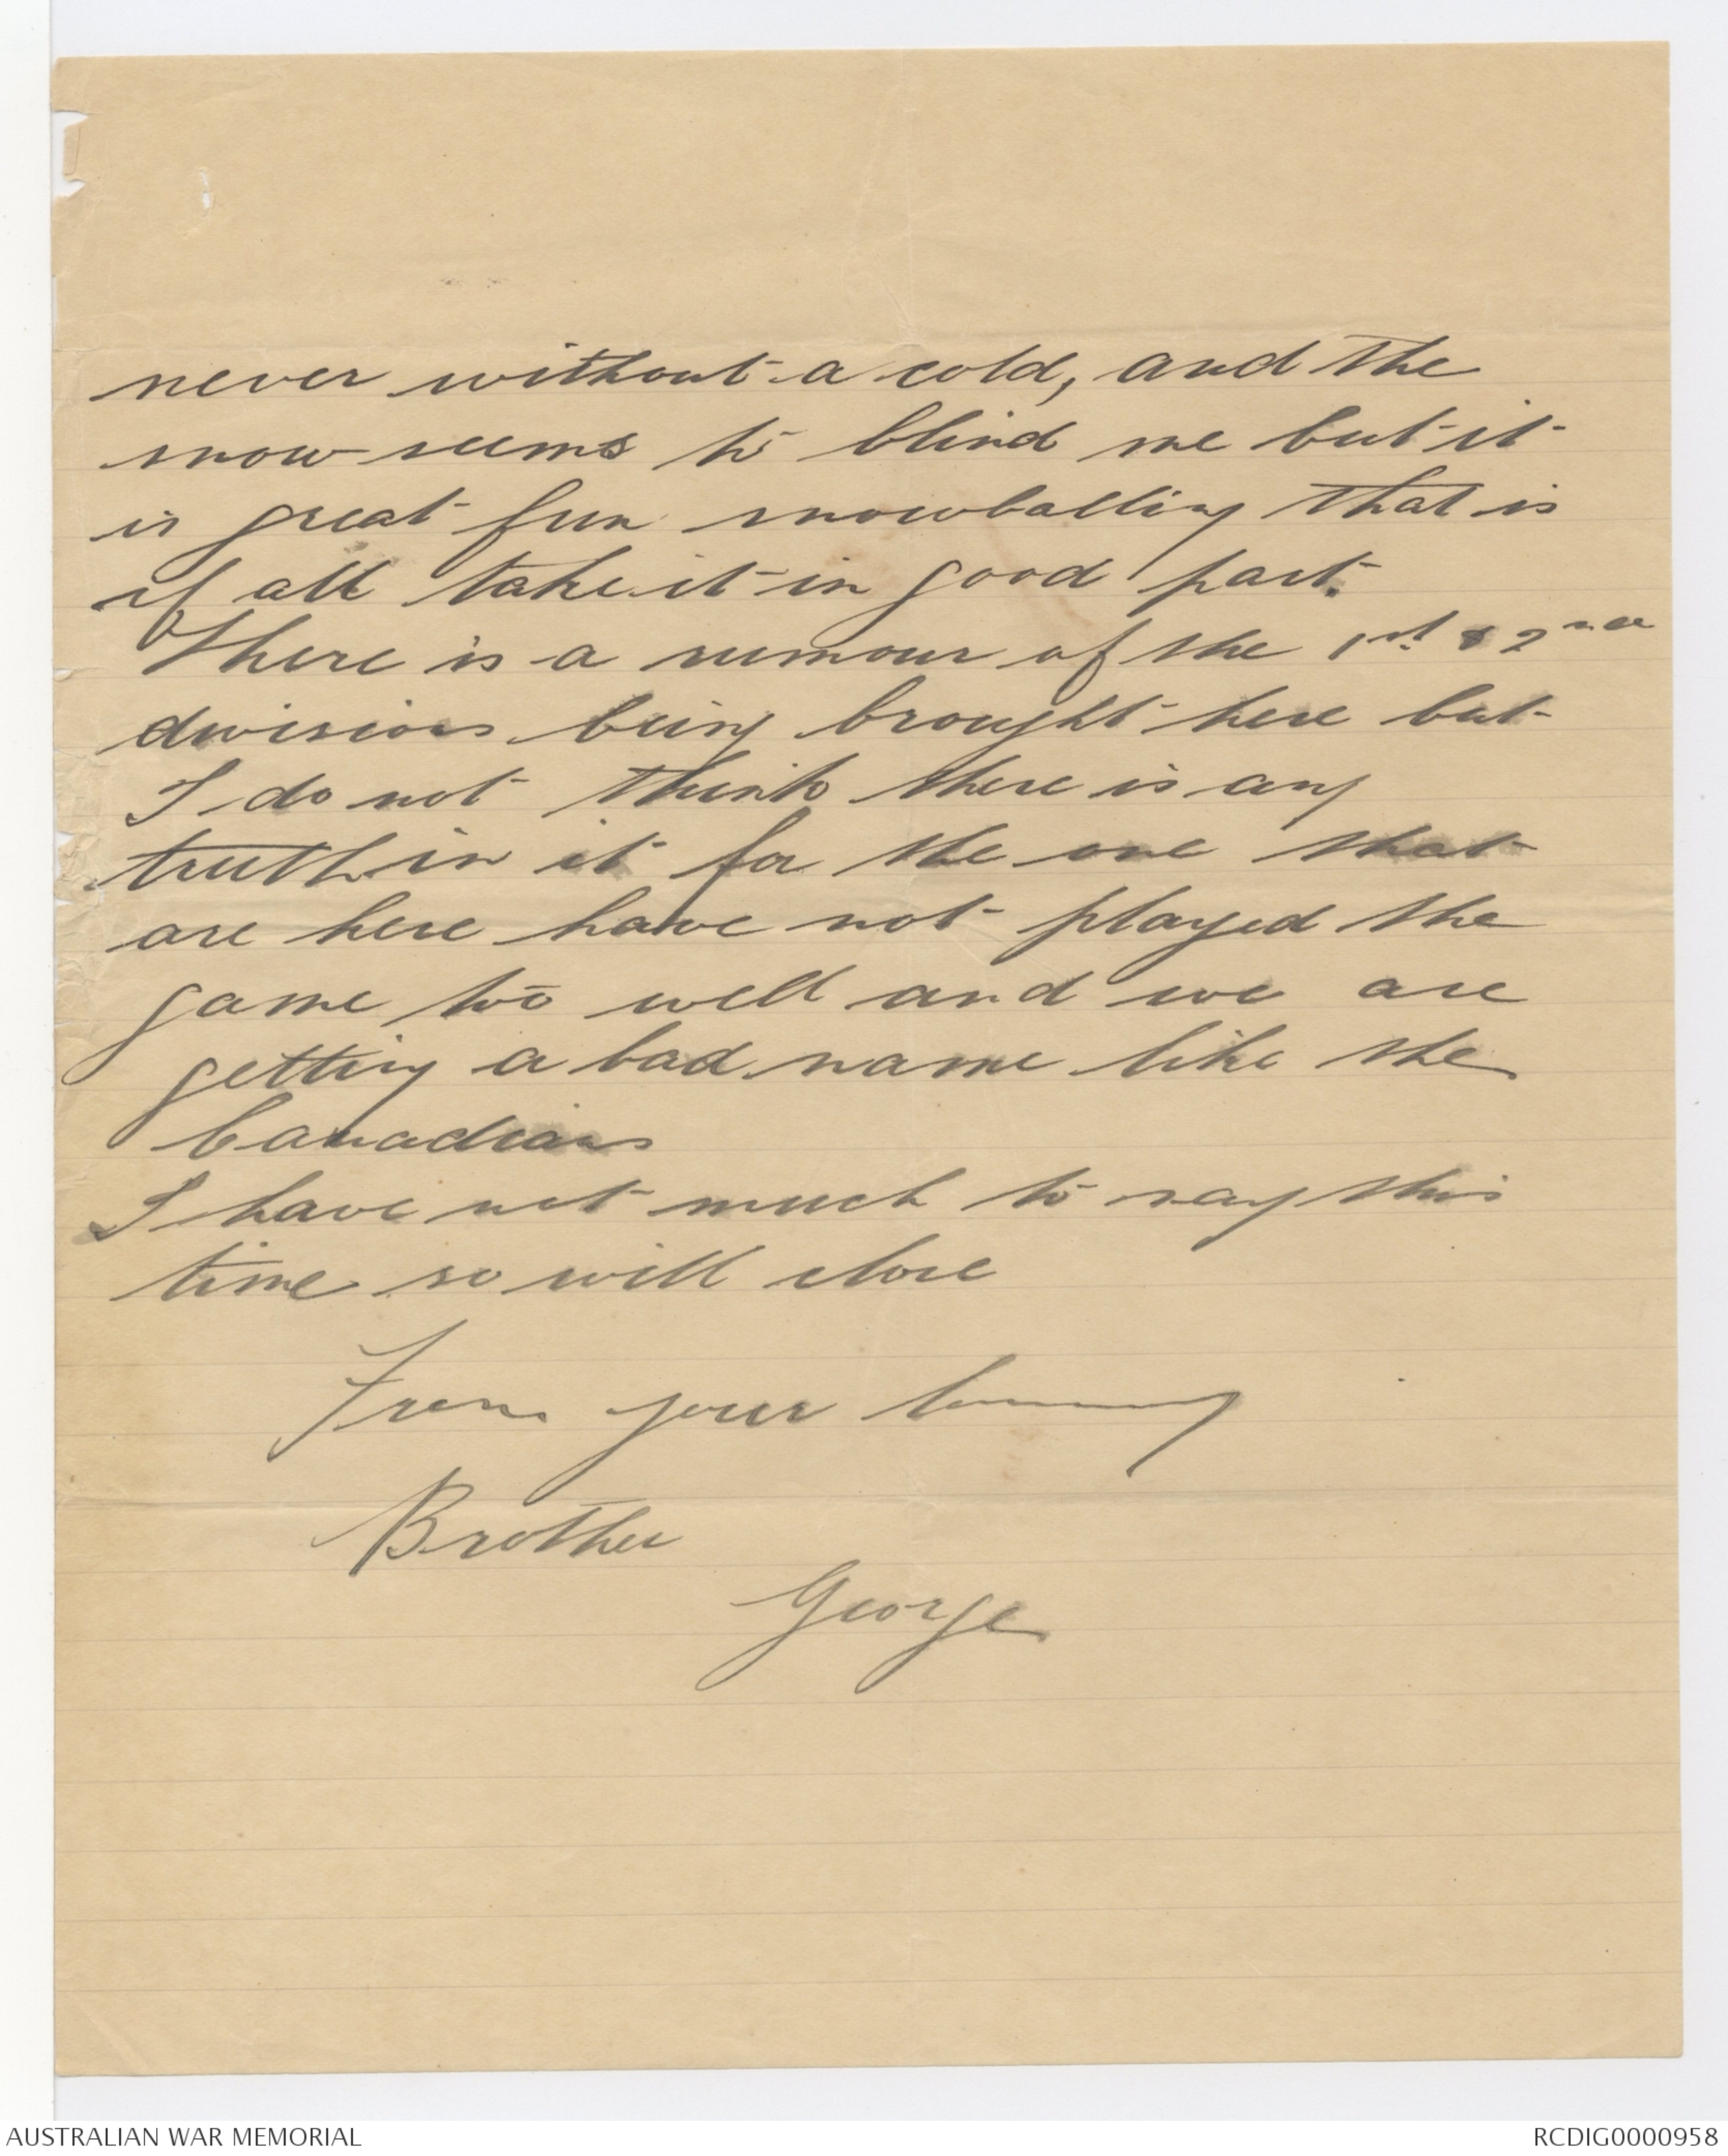 never without a cold, and the
snow seems to blind me but it
is great fun snowballing that is
if all take it in good part.
There is a rumour of the 1st & 2nd
divisions being brought here but
I do not think there is any
truth in it for the one that
are here have not played the
game too well and we are
getting a bad name like the
Canadians
I have not much to say this
time so will close
From your loving
Brother
George
AUSTRALIAN WAR MEMORIAL
RCDIG0000958